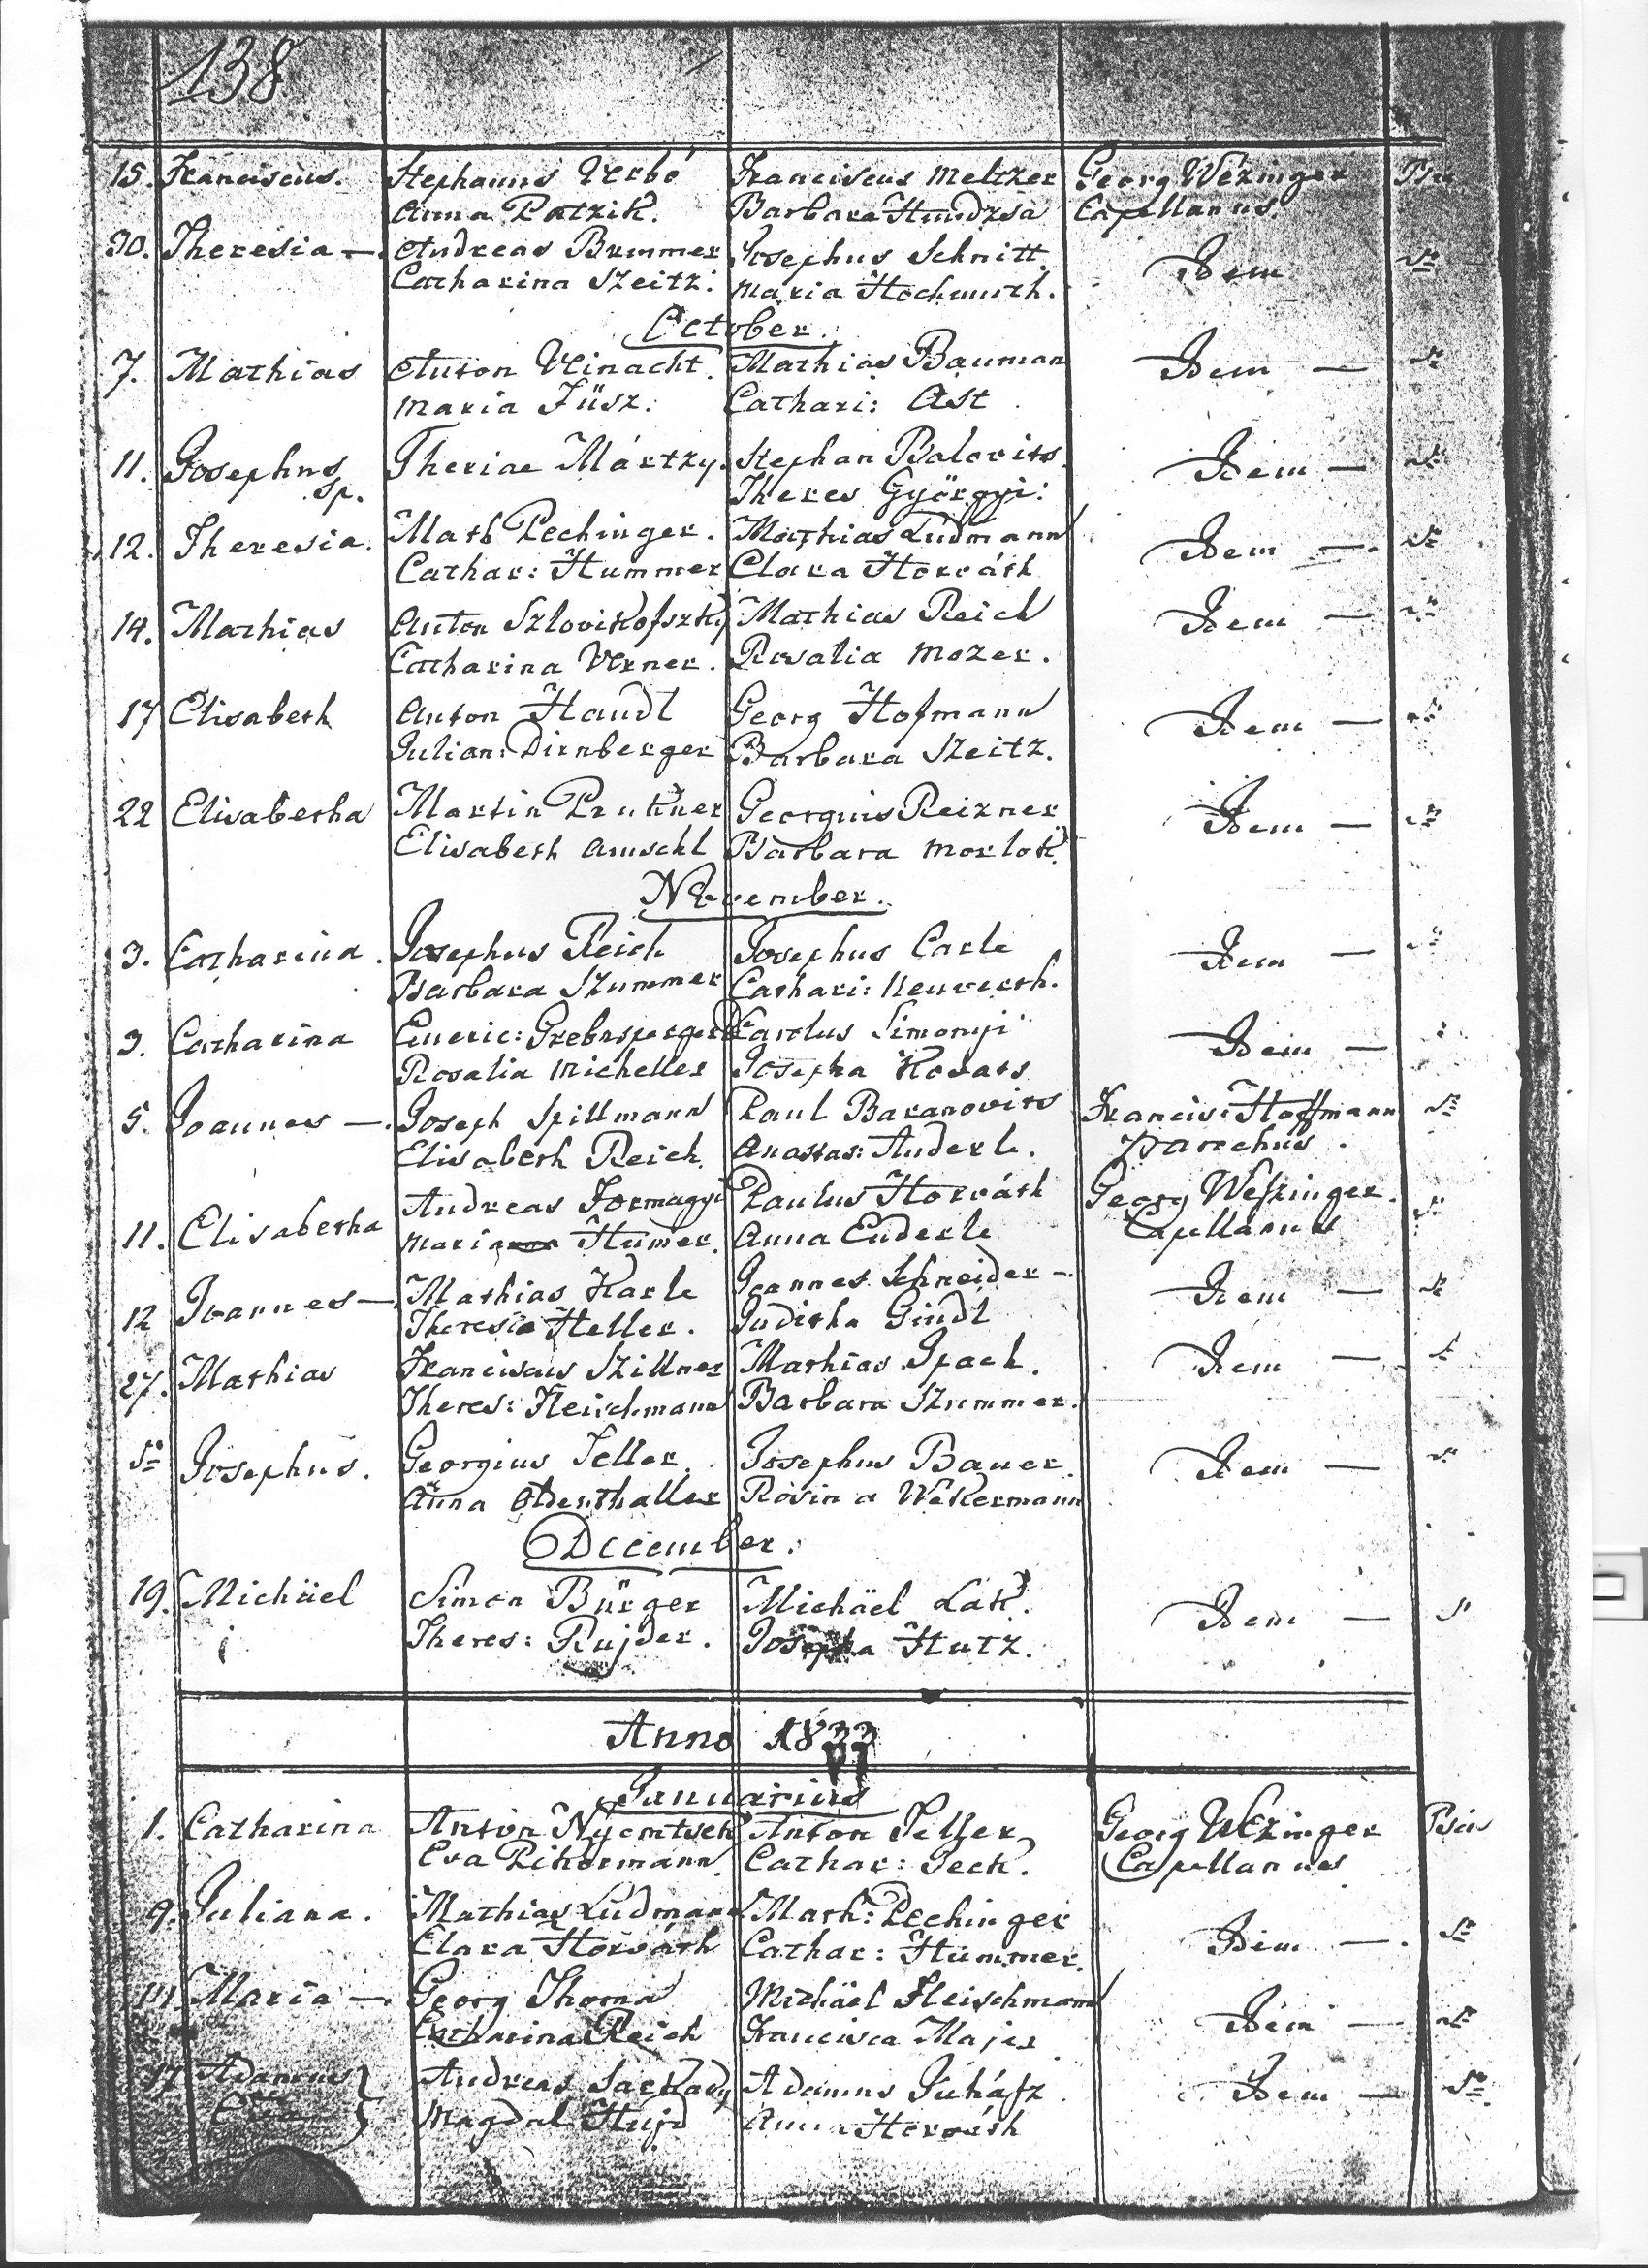 138
15. Franciscus. Stephanus Verbó Franciscus Meltzer Georg Wezinger
Anna Patzik. Barbara Hundzsa Capellanus.
30. Theresia —. Andreas Brummer Josephus Schnitt Idem
Catharina Szeitz: Maria Hochmuth.
October.
7. Mathias Anton Veinacht. Mathias Bauman Idem —
Maria Füsz: Cathari: Ast
11. Josephus Theriae Mártzy. Stephan Balovits Idem —
Sp. Theres Györgyi:
12. Theresia. Math Pechinger. Mathias Ludmann Idem —
Cathar: Hummer Clara Horváth
14. Mathias Anton Szlovikofszky Mathias Reich Idem —
Catharina Verner. Rosalia Mozer.
17 Elisabeth Anton Handl Georg Hofmann Idem —
Julian: Dirnberger Barbara Szeitz.
22 Elisabetha Martin Prukner Georgius Reizner Idem —
Elisabeth Amschl Barbara Morlok
November.
3. Catharina. Josephus Reich Josephus Carle Idem —
Barbara Szummer Cathari: Neuverth.
3. Catharina Emeric: Grebnsperger Carolus Simonyi Idem —
Rosalia Micheller Josepha Kovats
5. Joannes —. Joseph Spillmann Paul Baranovits Francis: Hoffmann
Elisabeth Reich. Anastas: Anderle. Parochus.
11. Elisabetha Andreas Tormagyi Paulus Horváth Georg Weszinger.
Maria Humer. Anna Enderle Capellanus
12 Joannes —. Mathias Karle Joannes Schneider —. Idem —
Theresia Heller. Juditha Gindl
27. Mathias Franciscus Szillner Mathias Spach. Idem —
Theres: Fleischmann Barbara Szummer.
Josephus. Georgius Teller. Josephus Bauer. Idem —
Anna Odenthaller Rosina Wekermann
December.
19. Michäel Simon Bürger Michäel Lak. Idem —
Theres: Rujder. Josepha Hutz.
Anno 1833
Januarius
1. Catharina Anton Nyemtsek Anton Teller Georg Wezinger
Eva Pikermann. Cathar: Seck. Capellanus
9. Juliana. Mathias Ludmann Math: Pechinger Idem —.
Clara Horváth Cathar: Hummer.
Maria —. Georg Thoma Michäel Fleischmann Idem —
Catharina Reich Francisca Majer
17 Adamus Andreas Sarkady Adamus Juhász. Idem —
Magdal Hujd Anna Horváth